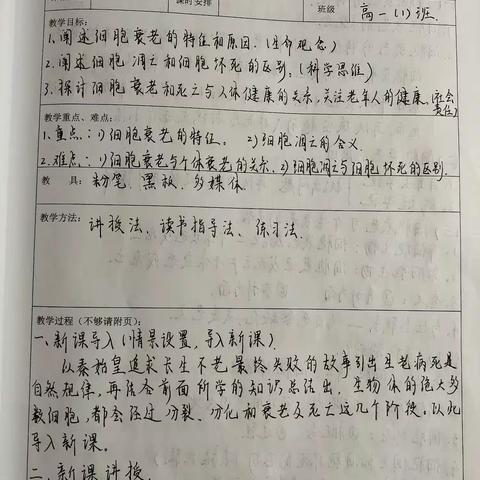 课时安排
班级
高一(1)班.
教学目标:
1、阐述细胞衰老的特征和原因.(生命观念)
2、阐述细胞凋亡和细胞坏死的区别.(科学思维)
3、探讨细胞衰老和死亡与人体健康的关系,关注老年人的健康.(社会责任)
教学重点、难点:
1、重点:1)细胞衰老的特征. 2)细胞凋亡的含义.
2、难点:1)细胞衰老与个体衰老的关系.2)细胞凋亡与细胞坏死的区别.
教 具: 粉笔、黑板、多媒体.
教学方法: 讲授法、读书指导法、练习法.
教学过程(不够请附页):
一、新课导入(情景设置,导入新课)
以秦始皇追求长生不老最终失败的故事引出生老病死是
自然规律,再结合前面所学的知识总结出,生物体的绝大多
数细胞,都会经过分裂、分化和衰老及死亡这几个阶段。以此
导入新课。
二、新课讲授.